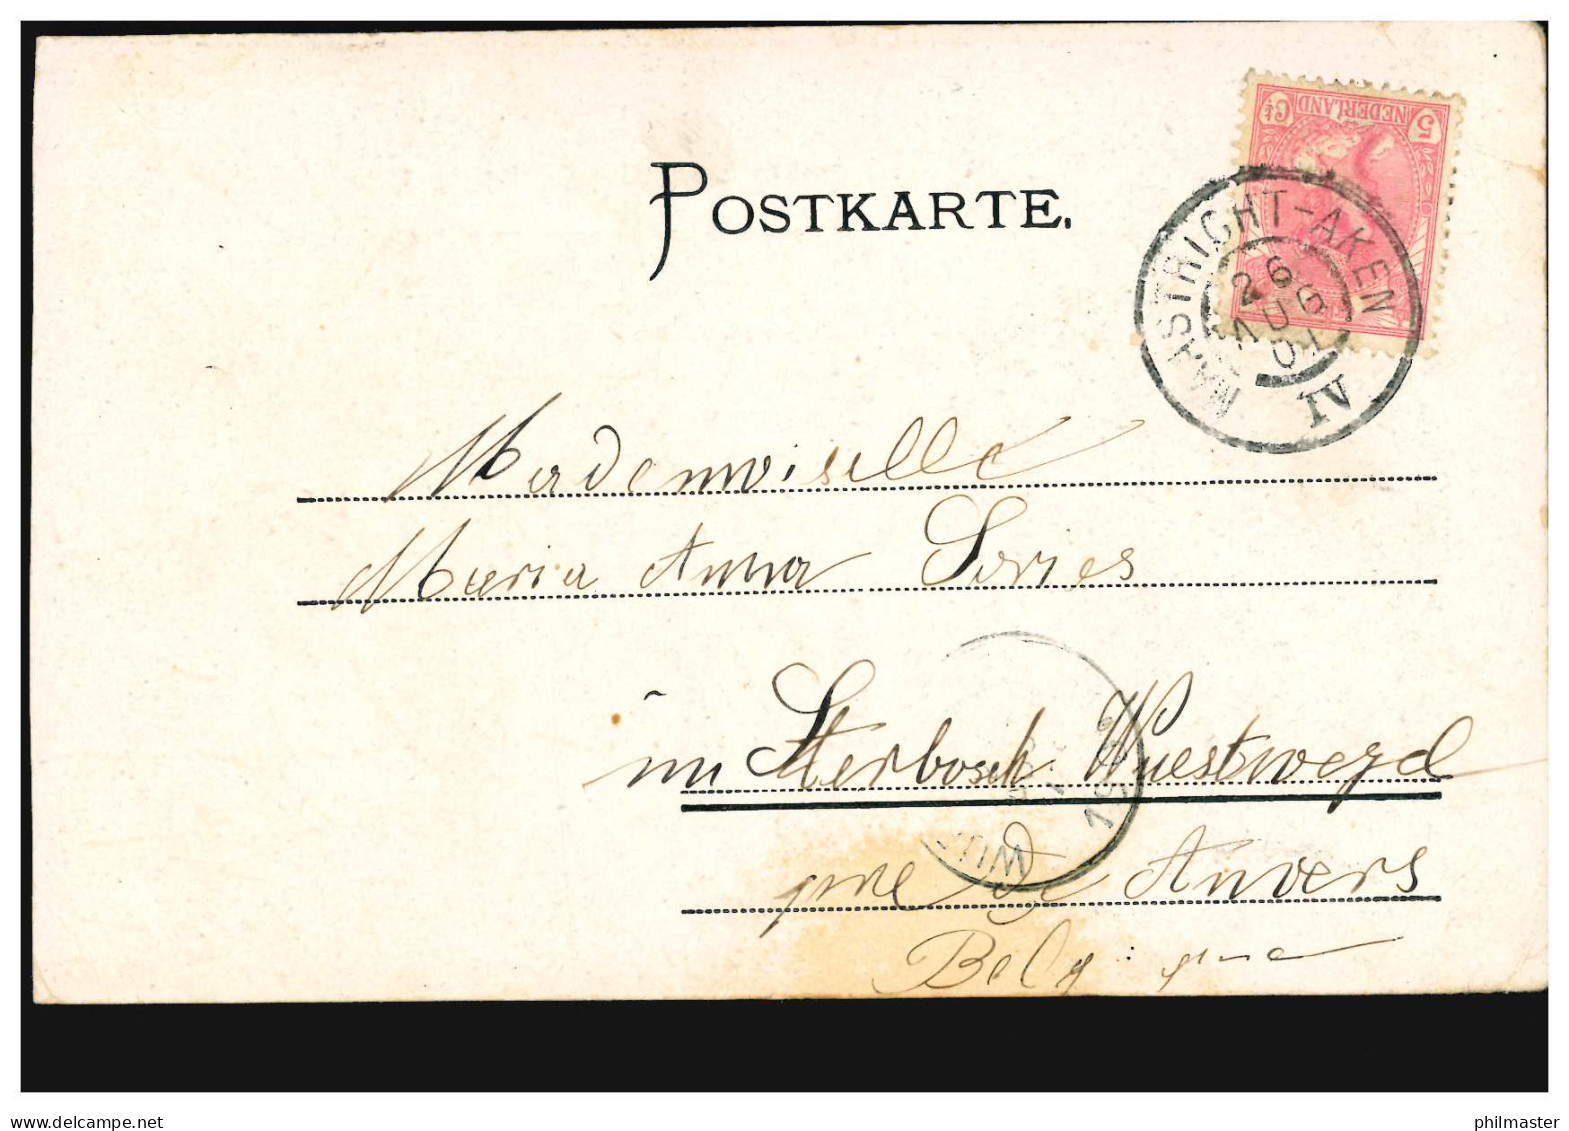 POSTKARTE.
5 NEDERLAND Ct
MAASTRICHT-AKEN
26 AUG 01
IV
Mademoiselle
Maria Anna Sories
im Sterbosch Wuestwezel
de Anvers
Belgique
philmaster
www.delcampe.net